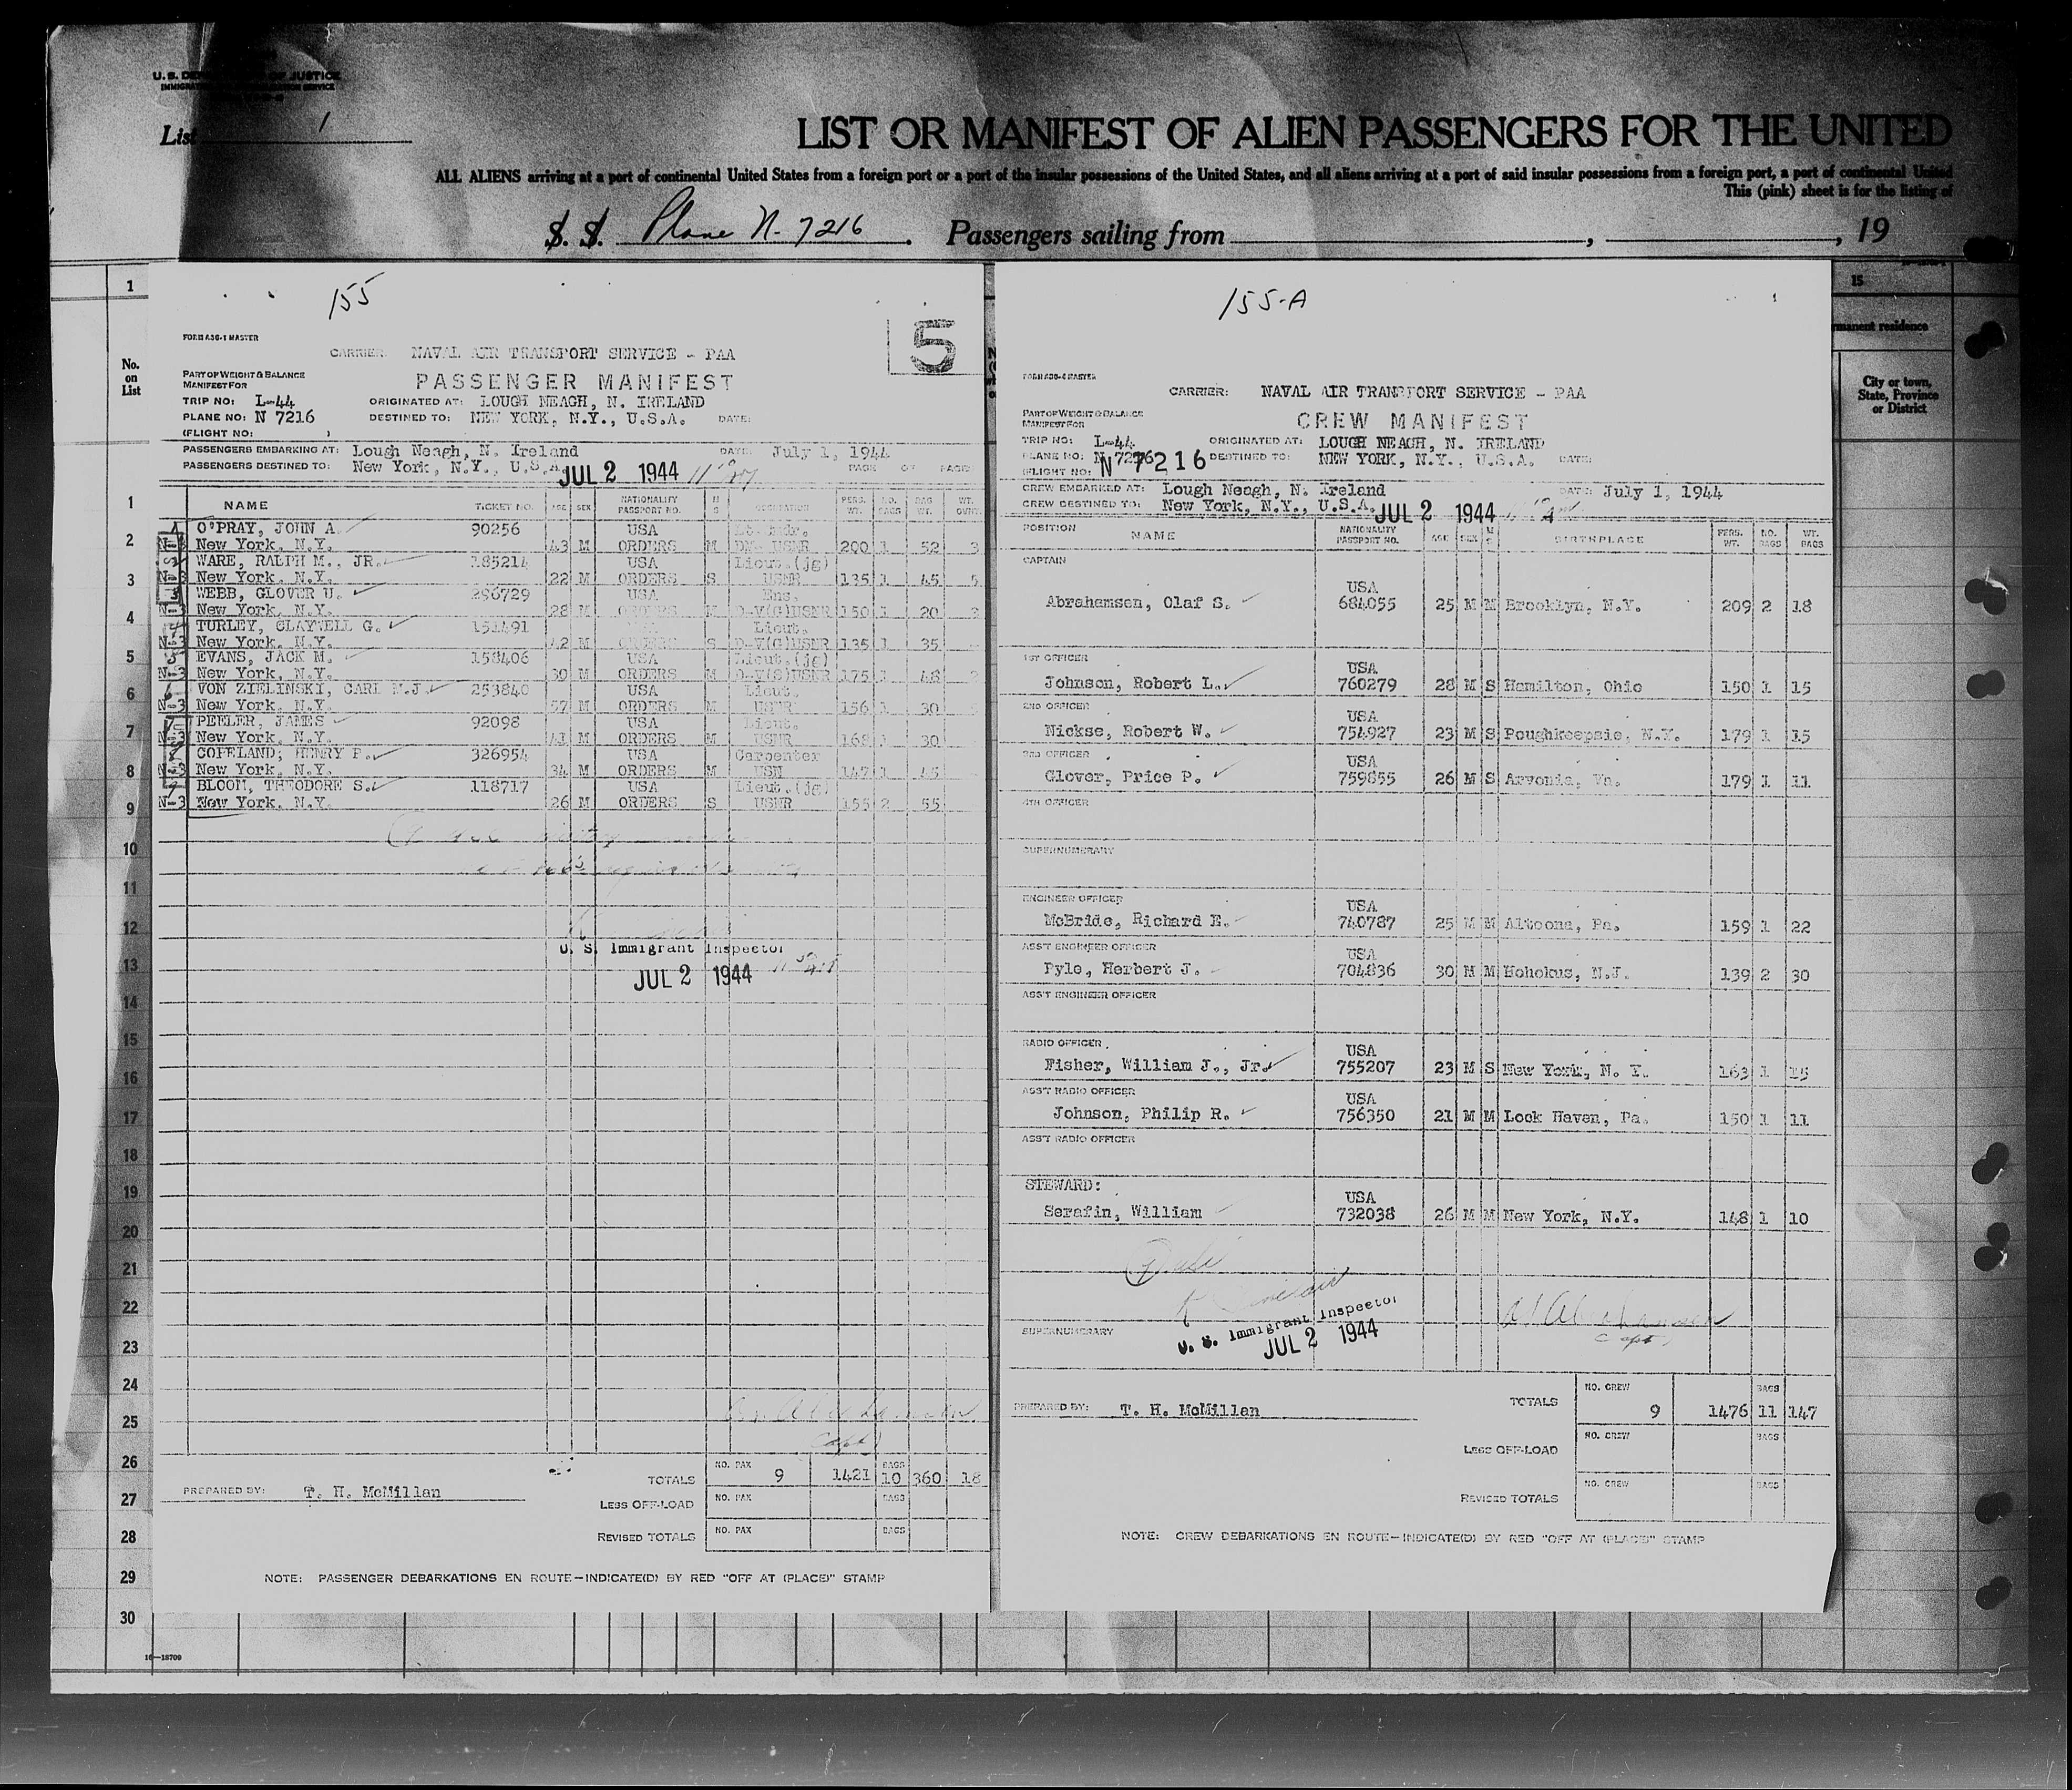 U. S. DEPARTMENT OF JUSTICE
IMMIGRATION AND NATURALIZATION SERVICE
List 1
LIST OR MANIFEST OF ALIEN PASSENGERS FOR THE UNITED
ALL ALIENS arriving at a port of continental United States from a foreign port or a port of the insular possessions of the United States, and all aliens arriving at a port of said insular possessions from a foreign port, a port of continental United
This (pink) sheet is for the listing of
S. S. Plane N. 7216. Passengers sailing from , , 19
1
No. on List
155
5
FORM ASG-1 MASTER
CARRIER: NAVAL AIR TRANSPORT SERVICE - PAA
PART OF WEIGHT & BALANCE
MANIFEST FOR
PASSENGER MANIFEST
TRIP NO: L-44 ORIGINATED AT: LOUGH NEAGH, N. IRELAND
PLANE NO: N 7216 DESTINED TO: NEW YORK, N.Y., U.S.A. DATE:
(FLIGHT NO: )
PASSENGERS EMBARKING AT: Lough Neagh, N. Ireland DATE: July 1, 1944
PASSENGERS DESTINED TO: New York, N.Y., U.S.A. JUL 2 1944 PAGE OF PAGES
NAME TICKET NO. AGE SEX NATIONALITY PASSPORT NO. M S OCCUPATION PERS. WT. NO. BAGS BAG WT. WT.
1 O'PRAY, JOHN A. 90256 USA Lt. Cdr.
N-3 New York, N.Y. 43 M ORDERS M USNR 200 1 52 3
2 WARE, RALPH M., JR. 185214 USA Lieut.(jg)
N-3 New York, N.Y. 22 M ORDERS S USNR 135 1 45 5
3 WEBB, GLOVER U. 296729 USA Ens.
N-3 New York, N.Y. 28 M ORDERS M D-V(G)USNR 150 1 20 3
4 TURLEY, CLAYWELL G. 151491 USA Lieut.
N-3 New York, N.Y. 42 M ORDERS S D-V(G)USNR 135 1 35
5 EVANS, JACK M. 158406 USA Lieut.(jg)
N-3 New York, N.Y. 30 M ORDERS M D-V(S)USNR 175 1 48 2
6 VON ZIELINSKI, CARL M.J. 253840 USA Lieut.
N-3 New York, N.Y. 57 M ORDERS M USNR 156 1 30
7 PEELER, JAMES 92098 USA Lieut.
N-3 New York, N.Y. 41 M ORDERS M USNR 168 1 30
8 COPELAND, HENRY P. 326954 USA Carpenter
N-3 New York, N.Y. 34 M ORDERS M USN 147 1 45
9 BLOOM, THEODORE S. 118717 USA Lieut.(jg)
N-3 New York, N.Y. 26 M ORDERS S USNR 155 2 55
U. S. Immigrant Inspector
JUL 2 1944
Capt
TOTALS NO. PAX 9 1421 BAGS 10 360 18
PREPARED BY: T. H. McMillan
LESS OFF-LOAD NO. PAX BAGS
REVISED TOTALS NO. PAX BAGS
NOTE: PASSENGER DEBARKATIONS EN ROUTE—INDICATE(D) BY RED "OFF AT (PLACE)" STAMP
155-A
FORM ASG-4 MASTER
CARRIER: NAVAL AIR TRANSPORT SERVICE - PAA
PART OF WEIGHT & BALANCE
MANIFEST FOR
CREW MANIFEST
TRIP NO: L-44 ORIGINATED AT: LOUGH NEAGH, N. IRELAND
PLANE NO: N 7216 DESTINED TO: NEW YORK, N.Y., U.S.A. DATE:
(FLIGHT NO:
CREW EMBARKED AT: Lough Neagh, N. Ireland DATE: July 1, 1944
CREW DESTINED TO: New York, N.Y., U.S.A. JUL 2 1944
POSITION NAME NATIONALITY PASSPORT NO. AGE SEX M S BIRTHPLACE PERS. WT. NO. BAGS WT. BAGS
CAPTAIN
USA
Abrahamsen, Olaf S. 684055 25 M M Brooklyn, N.Y. 209 2 18
1ST OFFICER USA
Johnson, Robert L. 760279 28 M S Hamilton, Ohio 150 1 15
2ND OFFICER USA
Nickse, Robert W. 754927 23 M S Poughkeepsie, N.Y. 179 1 15
3RD OFFICER USA
Glover, Price P. 759855 26 M S Arvonia, Va. 179 1 11
4TH OFFICER
SUPERNUMERARY
ENGINEER OFFICER USA
McBride, Richard E. 740787 25 M M Altoona, Pa. 159 1 22
ASS'T ENGINEER OFFICER USA
Pyle, Herbert J. 704836 30 M M Hohokus, N.J. 139 2 30
ASS'T ENGINEER OFFICER
RADIO OFFICER USA
Fisher, William J., Jr. 755207 23 M S New York, N. Y. 163 1 15
ASS'T RADIO OFFICER USA
Johnson, Philip R. 756350 21 M M Lock Haven, Pa. 150 1 11
ASS'T RADIO OFFICER
STEWARD: USA
Serafin, William 732038 26 M M New York, N.Y. 148 1 10
U. S. Immigrant Inspector
JUL 2 1944
Capt
SUPERNUMERARY
PREPARED BY: T. H. McMillan
TOTALS NO. CREW 9 1476 BAGS 11 147
LESS OFF-LOAD NO. CREW BAGS
REVISED TOTALS NO. CREW BAGS
NOTE: CREW DEBARKATIONS EN ROUTE—INDICATE(D) BY RED "OFF AT (PLACE)" STAMP
15
rmanent residence
City or town, State, Province or District
1
2
3
4
5
6
7
8
9
10
11
12
13
14
15
16
17
18
19
20
21
22
23
24
25
26
27
28
29
30
16—18709